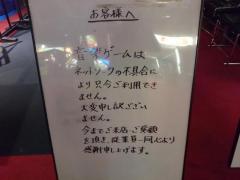 お客様へ
音楽ゲームは
ネットワークの不具合に
より只今ご利用でき
ません。
大変申し訳ござい
ません。
今までご来店・ご愛顧
を頂き、従業員一同心より
感謝申し上げます。